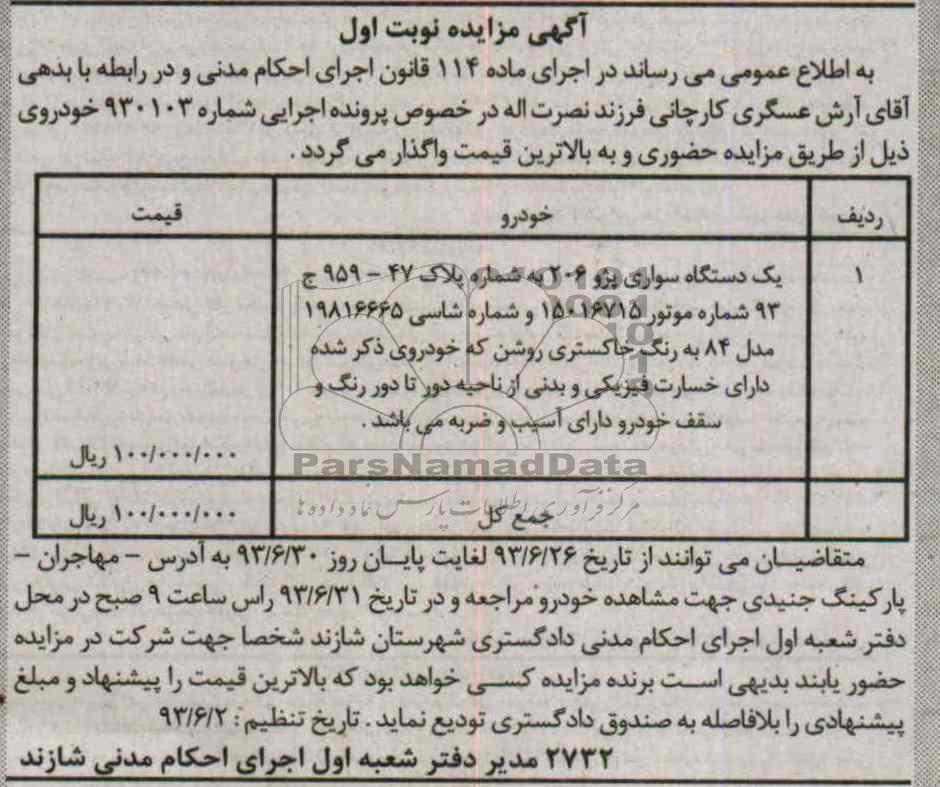 آگهی مزایده نوبت اول
به اطلاع عمومی می رساند در اجرای ماده ۱۱۴ قانون اجرای احکام مدنی و در رابطه با بدهی
آقای آرش عسگری کارچانی فرزند نصرت اله در خصوص پرونده اجرایی شماره ۹۳۰۱۰۳ خودروی
ذیل از طریق مزایده حضوری و به بالاترین قیمت واگذار می گردد .
ردیف خودرو قیمت
۱ یک دستگاه سواری پژو ۲۰۶ به شماره پلاک ۴۷ – ۹۵۹ ج
۹۳ شماره موتور ۱۵۰۱۶۷۱۵ و شماره شاسی ۱۹۸۱۶۶۶۵
مدل ۸۴ به رنگ خاکستری روشن که خودروی ذکر شده
دارای خسارت فیزیکی و بدنی از ناحیه دور تا دور رنگ و
سقف خودرو دارای آسیب و ضربه می باشد .
۱۰۰/۰۰۰/۰۰۰ ریال
ParsNamadData
مرکز فرآوری اطلاعات پارس نماد داده ها
جمع کل ۱۰۰/۰۰۰/۰۰۰ ریال
متقاضیان می توانند از تاریخ ۹۳/۶/۲۶ لغایت پایان روز ۹۳/۶/۳۰ به آدرس – مهاجران –
پارکینگ جنیدی جهت مشاهده خودرو مراجعه و در تاریخ ۹۳/۶/۳۱ راس ساعت ۹ صبح در محل
دفتر شعبه اول اجرای احکام مدنی دادگستری شهرستان شازند شخصا جهت شرکت در مزایده
حضور یابند بدیهی است برنده مزایده کسی خواهد بود که بالاترین قیمت را پیشنهاد و مبلغ
پیشنهادی را بلافاصله به صندوق دادگستری تودیع نماید . تاریخ تنظیم : ۹۳/۶/۲
۲۷۳۲ مدیر دفتر شعبه اول اجرای احکام مدنی شازند